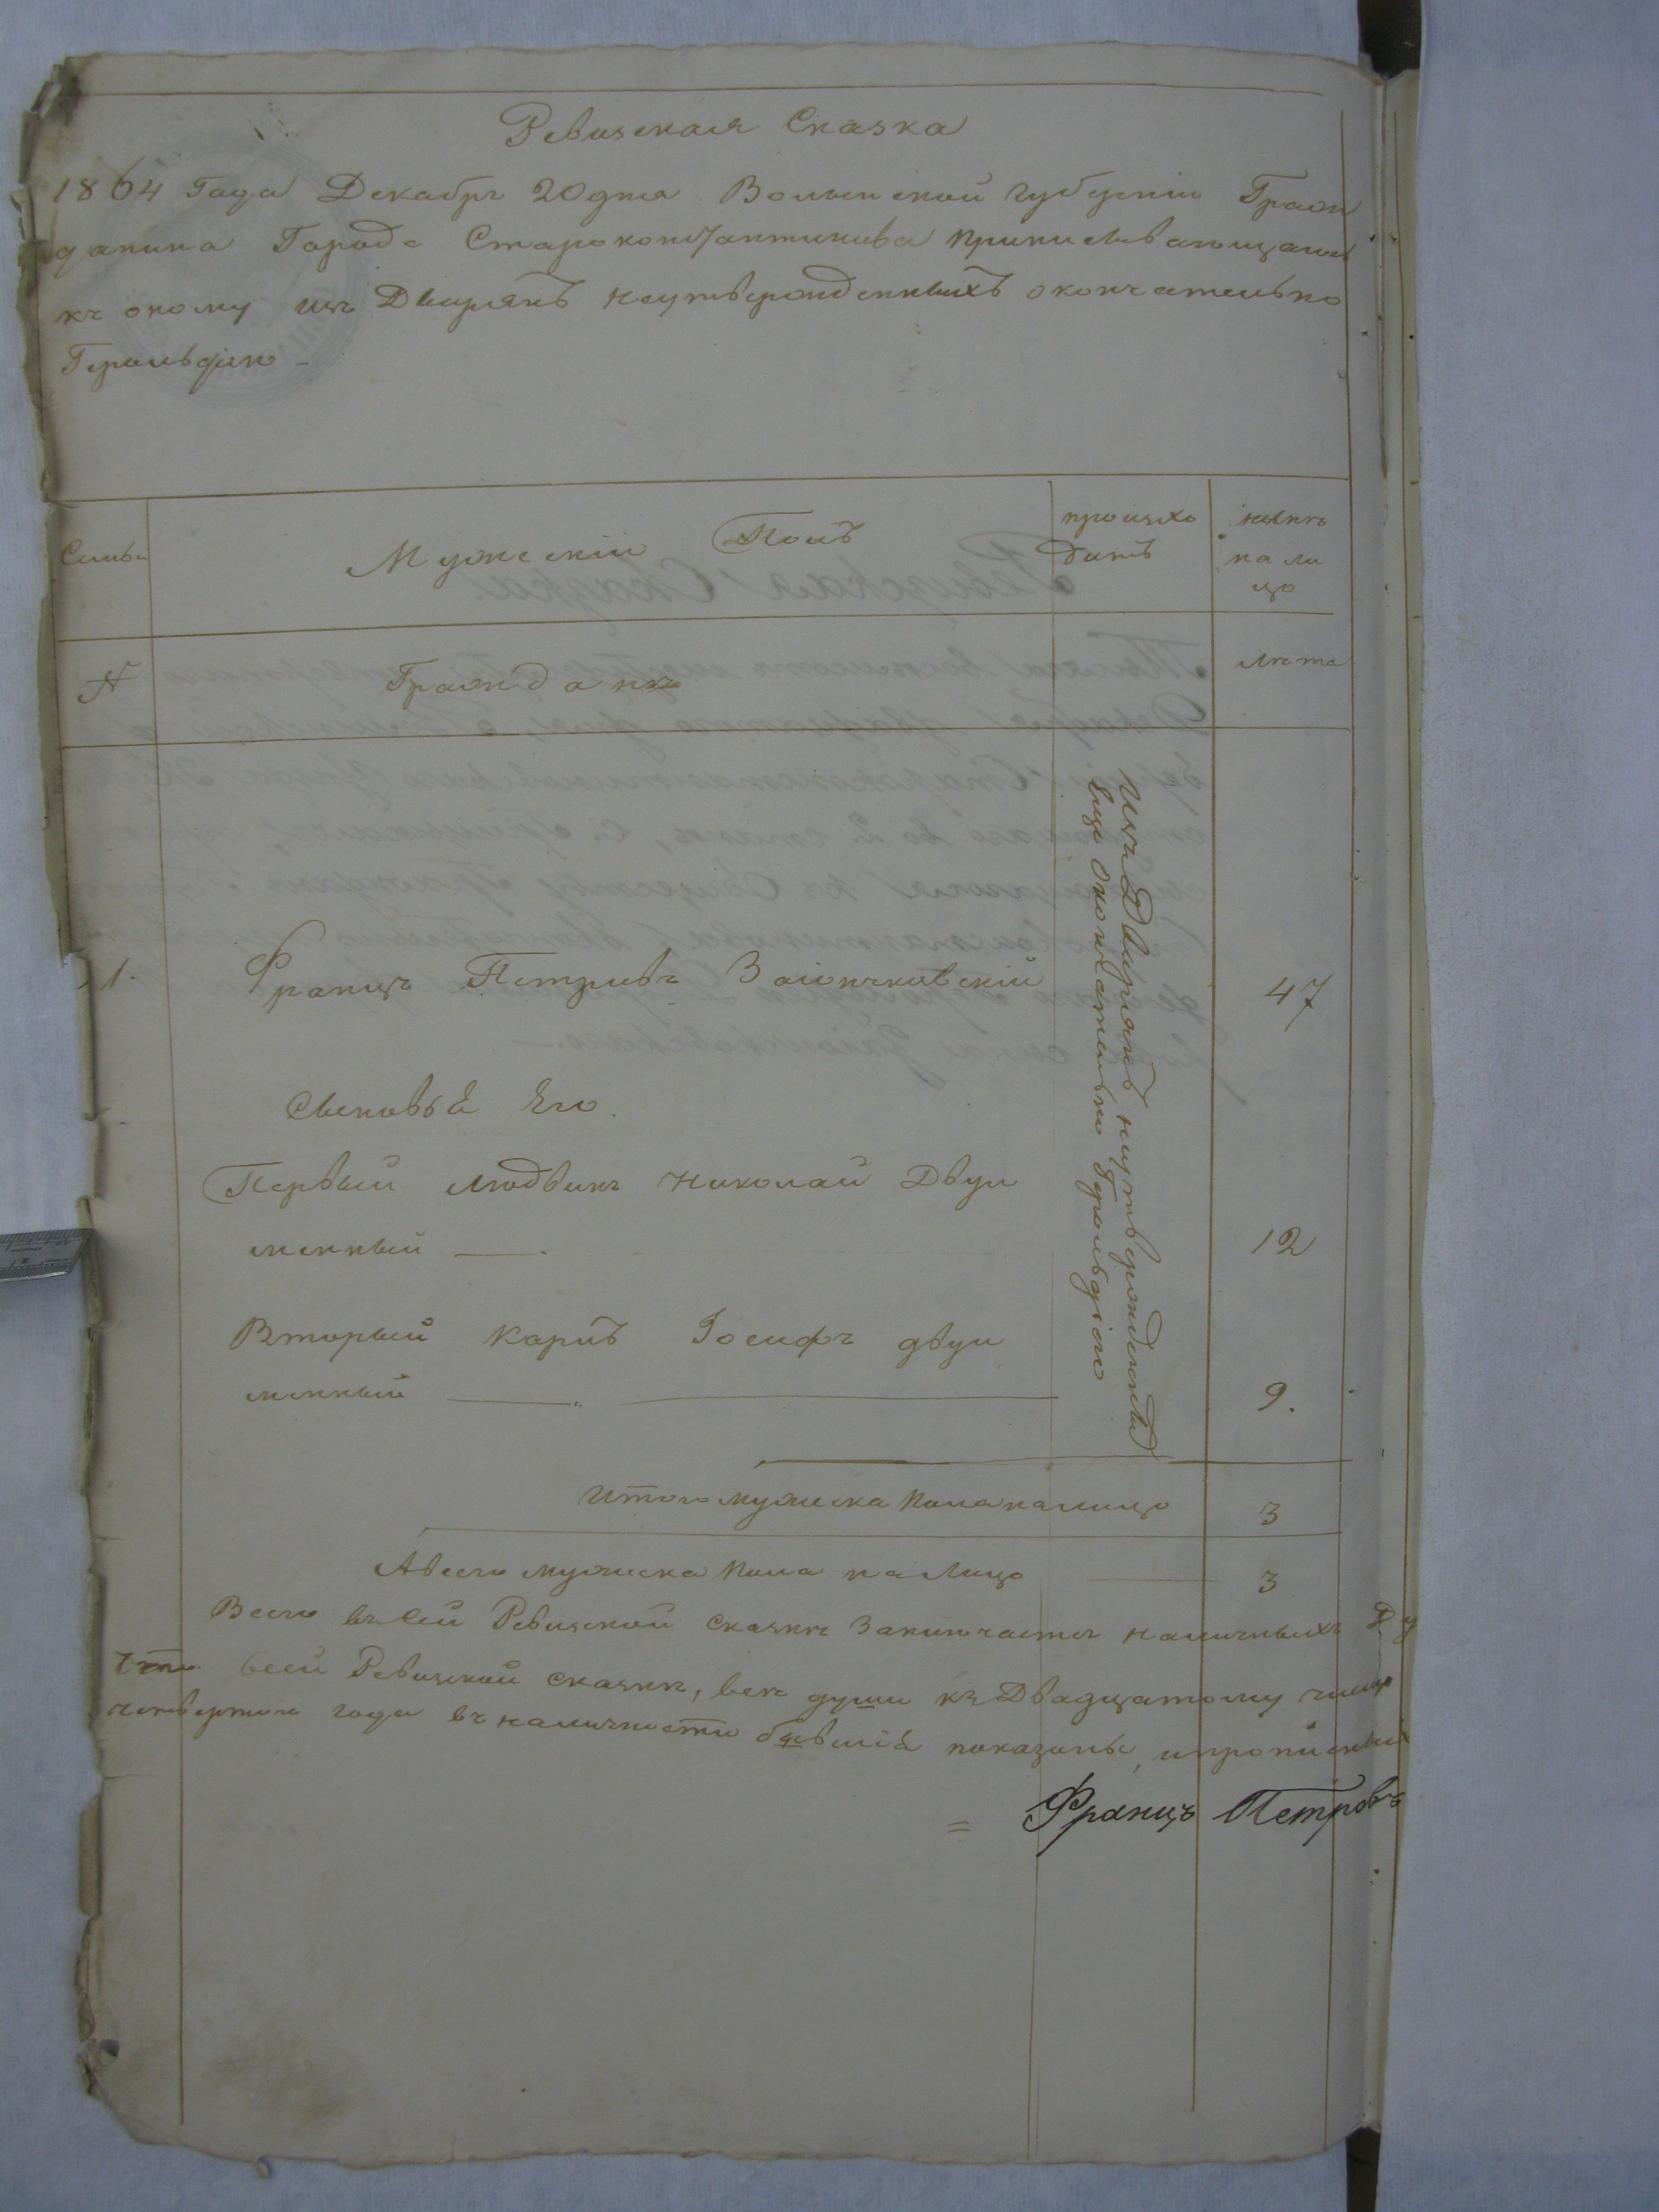 Ревизская Сказка
1864 Года Декабря 20 дня Волынской губернiи Граж
данина Города Староконстантинова приписывающагося
къ оному изъ Дворянъ неутвержденныхъ окончательно
Герольдiею
Семьи
Мужескiй Полъ
происхо
дитъ
нынѣ
на ли
цо
№
Гражданъ
лѣта
1.
Францъ Петровъ Заiончковскiй
47
Изъ Дворянъ неутвержденныхъ
еще окончательно Герольдiею
Сыновья Его.
Первый Людвикъ Николай Двуи
менный
12
Вторый Карлъ Iосифъ двуи
менный
9.
Итого мужеска пола налицо
3
А всего мужеска пола на лицо
3
Всего въ сей Ревизской сказкѣ Заключается наличныхъ Ду
Что всей Ревизской сказки, всѣ души къ Двадцатому числу
четвертого года въ наличности бывшiя показаны, и прописныхъ
Францъ Петровъ